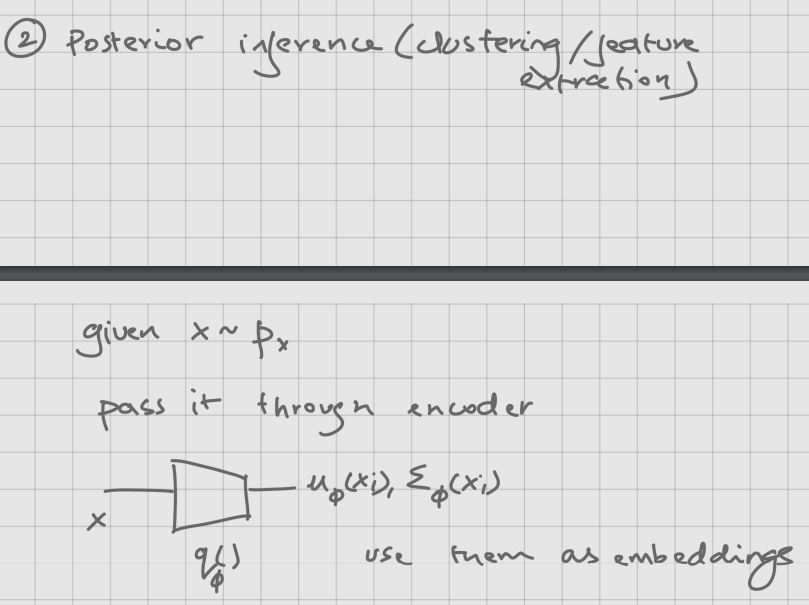 ② Posterior inference (clustering/feature
extraction)
given x ~ pₓ
pass it through encoder
x
μ_ϕ(xᵢ), Σ_ϕ(xᵢ)
q_ϕ()
use them as embeddings